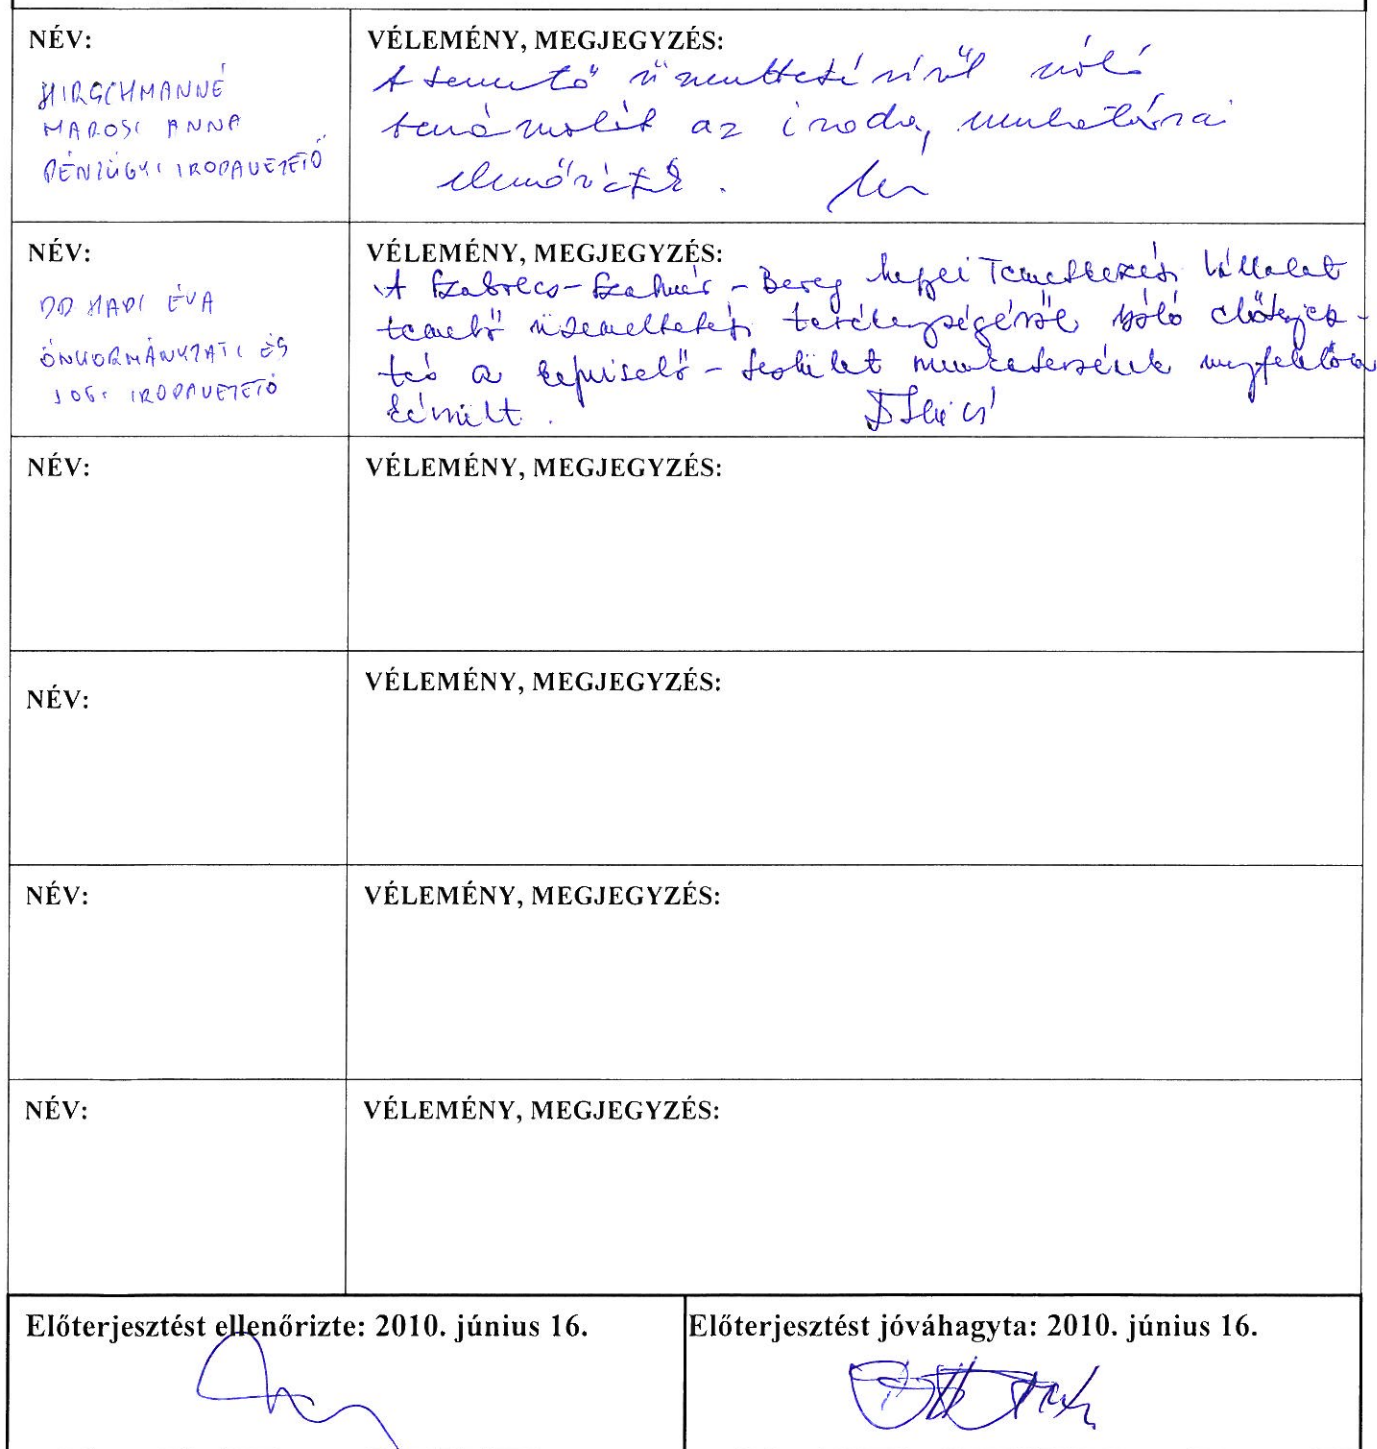 NÉV:
HIRSCHMANNÉ
MAROSI ANNA
PÉNZÜGYI IRODAVEZETŐ
VÉLEMÉNY, MEGJEGYZÉS:
A temető üzemeltetéséről szóló
beszámolót az iroda munkatársai
ellenőrizték.
NÉV:
DR HADI ÉVA
ÖNKORMÁNYZATI ÉS
JOGI IRODAVEZETŐ
VÉLEMÉNY, MEGJEGYZÉS:
A Szabolcs-Szatmár-Bereg Megyei Temetkezési Vállalat
temető üzemeltetési tevékenységéről szóló előterjesz-
tés a képviselő-testület munkatervének megfelelően
készült.
NÉV:
VÉLEMÉNY, MEGJEGYZÉS:
NÉV:
VÉLEMÉNY, MEGJEGYZÉS:
NÉV:
VÉLEMÉNY, MEGJEGYZÉS:
NÉV:
VÉLEMÉNY, MEGJEGYZÉS:
Előterjesztést ellenőrizte: 2010. június 16.
Előterjesztést jóváhagyta: 2010. június 16.